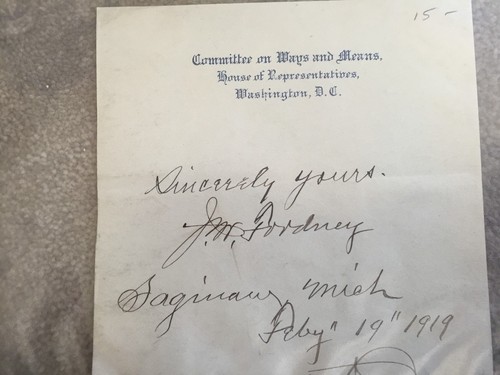 15-
Committee on Ways and Means,
House of Representatives,
Washington, D.C.
Sincerely yours.
J.W. Fordney
Saginaw, Mich
Feby" 19" 1919